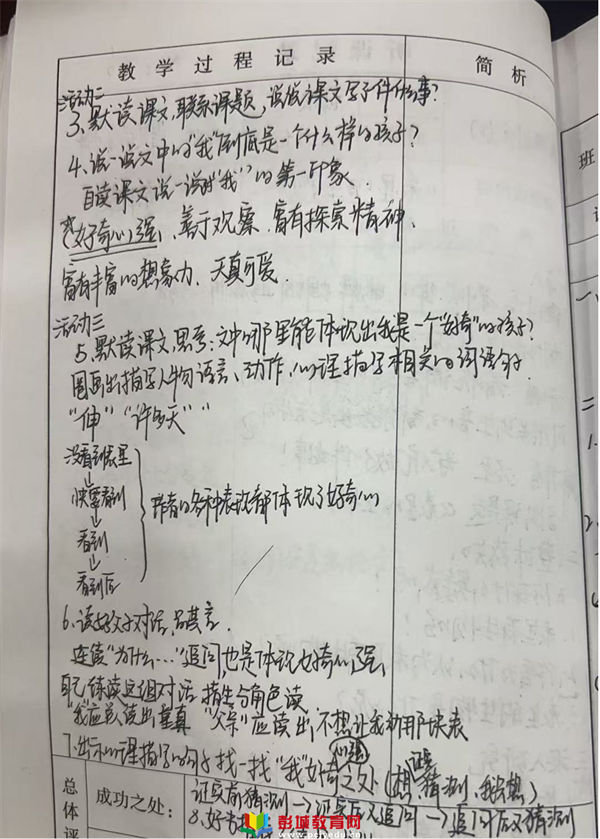 教学过程记录
简析
活动二
3、默读课文,联系课题,说说课文写了件什么事?
4、说一说文中的“我”到底是一个什么样的孩子?
自读课文说一说对“我”的第一印象
好奇心强、善于观察、富有探索精神、
富有丰富的想象力、天真可爱.
活动三
5、默读课文,思考:文中哪里能体现出我是一个“好奇”的孩子?
圈画出描写人物语言、动作、心理描写相关的词语句子.
“伸”“许多天”“
没看到表里
快要看到
看到
看到后
作者的各种表现都体现了好奇心
6、读好父子对话,品其言.
连续“为什么…”追问,也是体现好奇心强
自己练读这组对话 指生分角色读
“我”应该读出童真 “父亲”应读出,不想让我动用那块表
7、出示心理描写的句子 找一找“我”好奇之处(想 猜测,我想)
心强
证实
总体评
成功之处:
证实前猜测→证实后又追问→追问后又猜测
8、好
班
彭城教育网